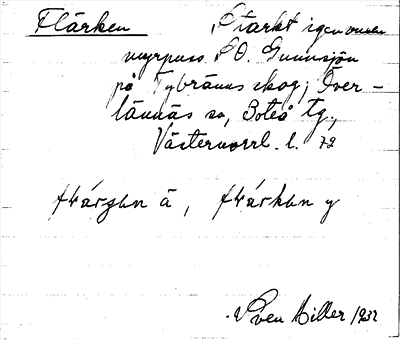 Flärken Starkt igenvuxen
myrpuss SO. Gunnsjön
på Tybränns skog, Över-
lännäs sn, Boteå tg.,
Västernorrl. l. 72
flárgən ä, flárkən y
Sven Miller 1932